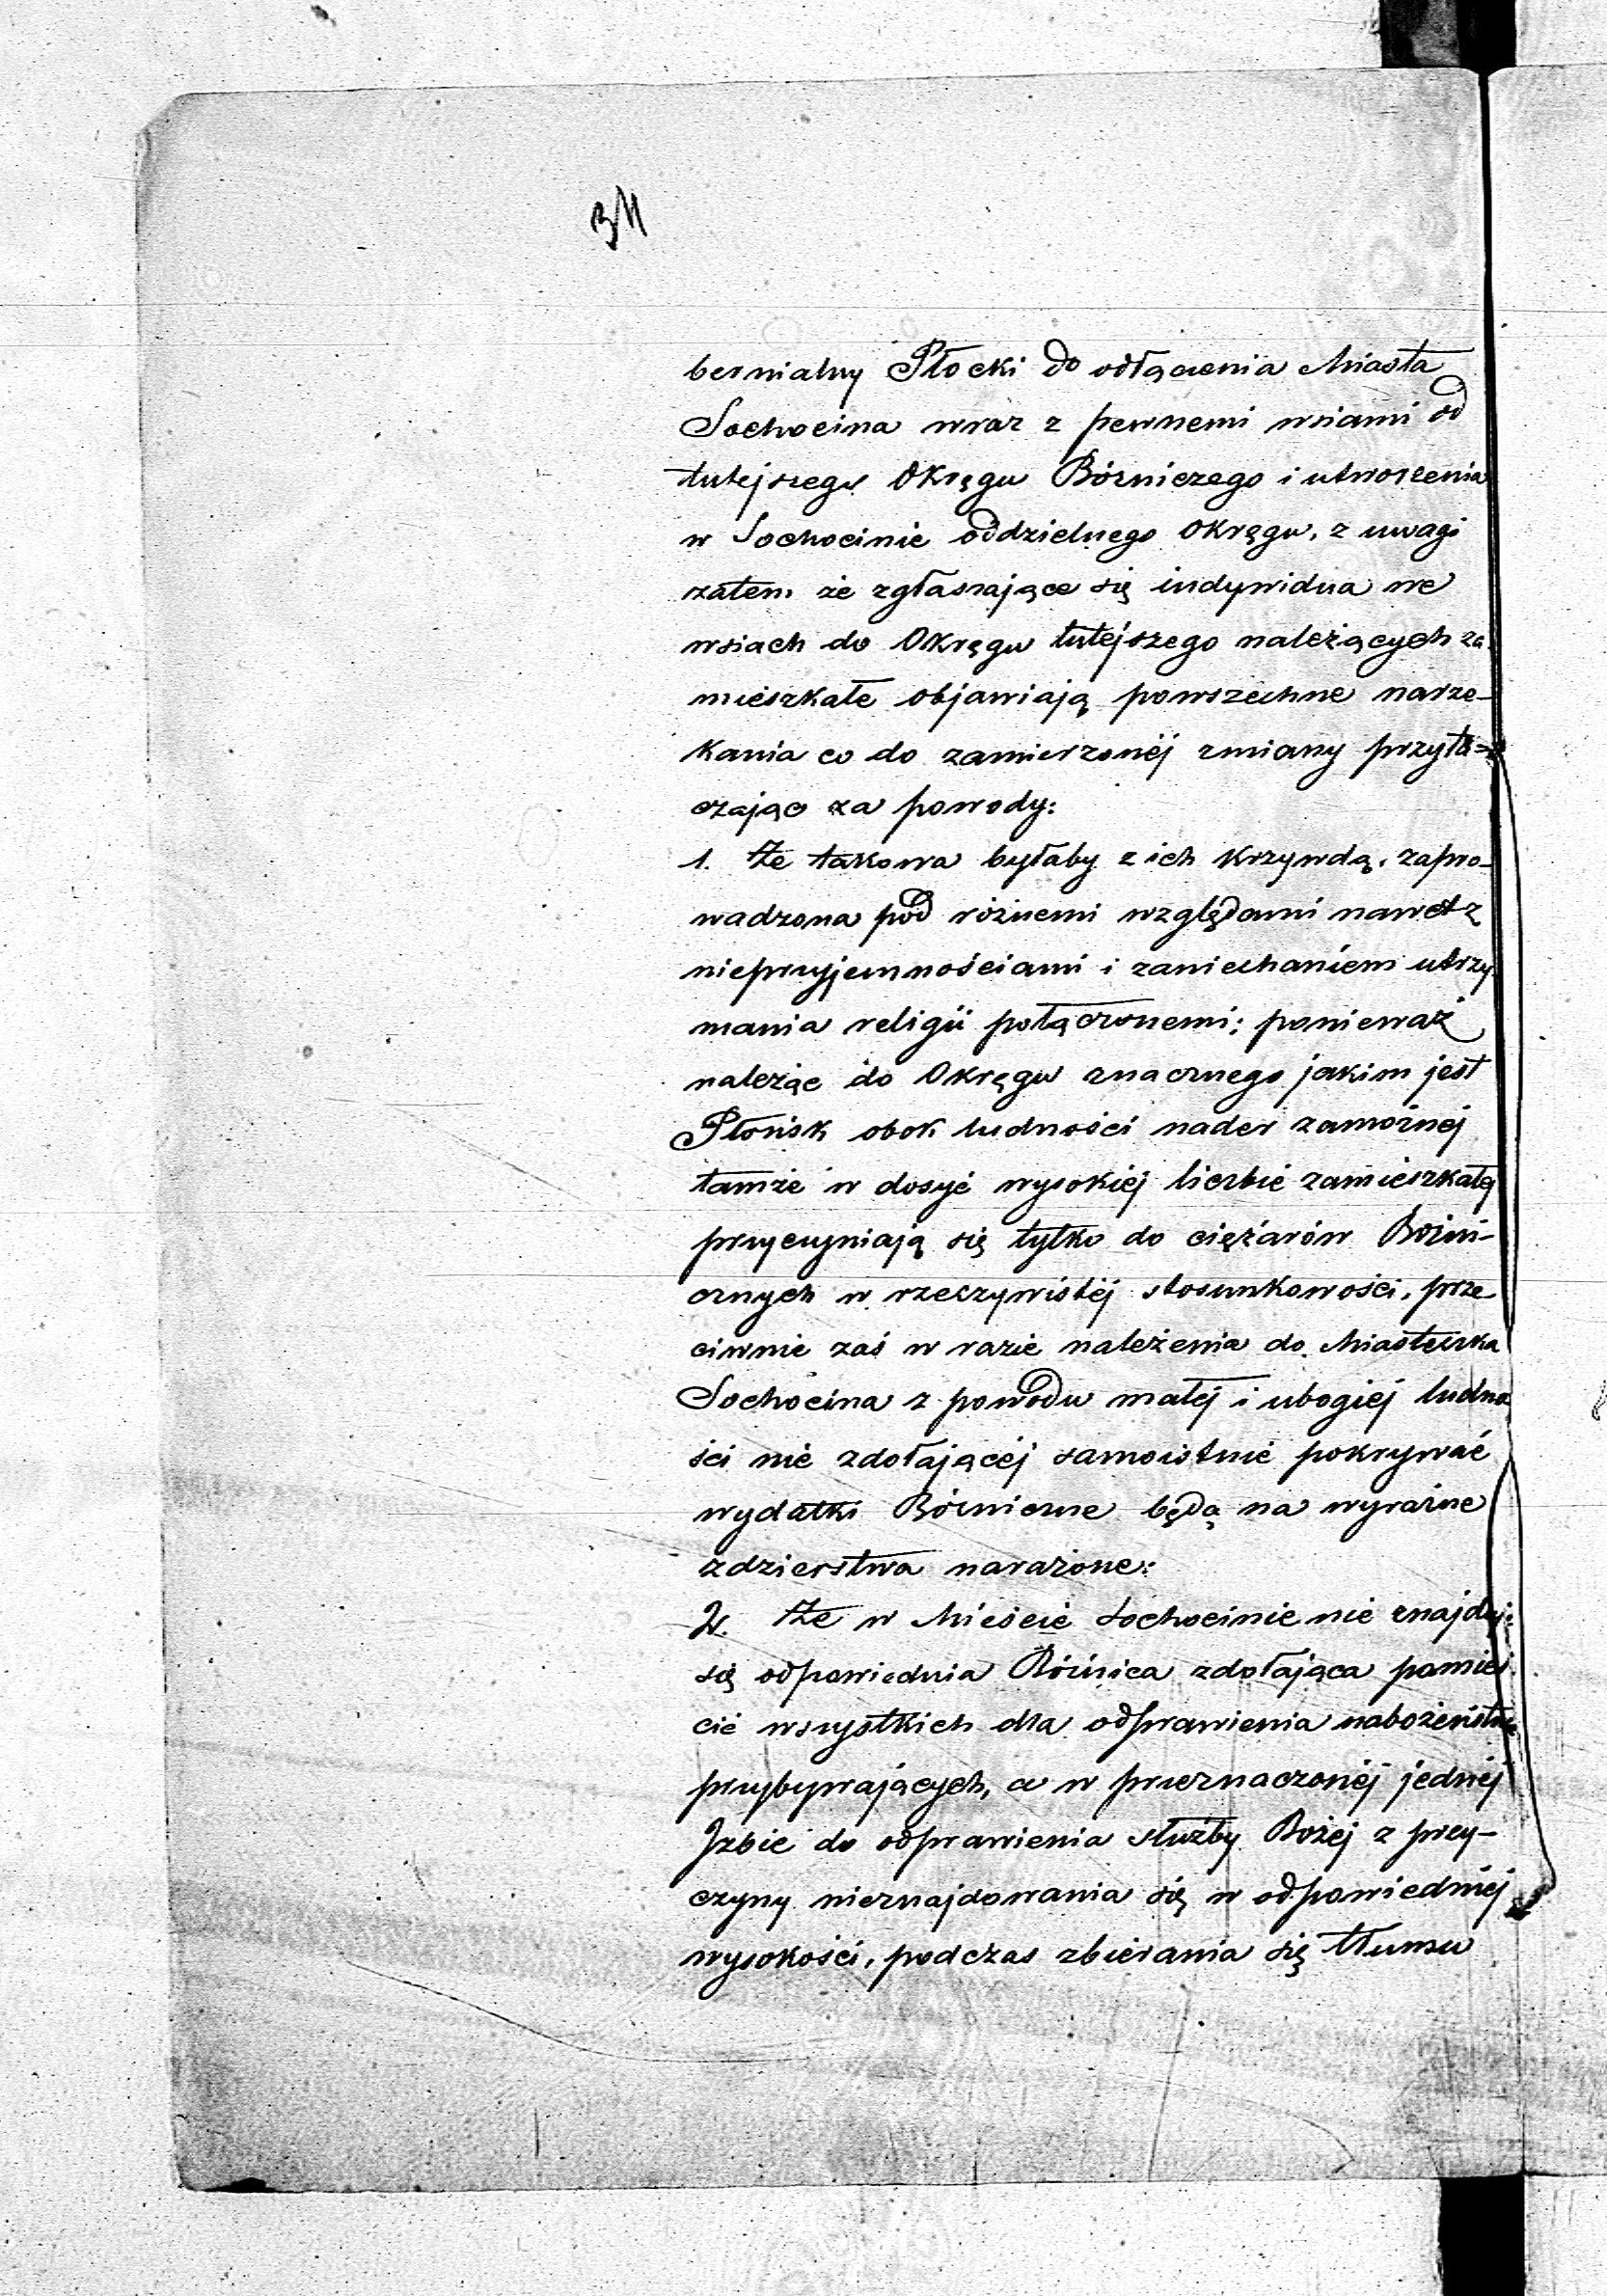 34
bernialny Płocki do odłączenia Miasta
Sochocina wraz z pewnemi wsiami od
tutejszego Okręgu Bóżniczego i utworzenia
w Sochocinie oddzielnego Okręgu, z uwagi
zatem że zgłaszające się indywidua we
wsiach do Okręgu tutejszego należących za
mieszkałe objawiają powszechne narze-
kania co do zamierzonéj zmiany przyta=
czając za powody:
1. Że takowa byłaby z ich krzywdą, zapro-
wadzona pod różnemi względami nawet z
nieprzyjemnościami i zaniechaniem utrzy
mania religii połączonemi; ponieważ
należąc do Okręgu znacznego jakim jest
Płońsk obok ludności nader zamożnej
tamże w dosyć wysokiéj liczbie zamieszkałej
przyczyniają się tylko do ciężarów Bóżni-
cznych w rzeczywistéj stosunkowości, prze
ciwnie zaś w razie należenia do Miasteczka
Sochocina z powodu małej i ubogiej ludno
ści nie zdołającéj samoistnie pokrywać
wydatki Bóżniczne będą na wyraźne
zdzierstwa narażone:
2. Że w Mieście Sochocinie nie znajduje
się odpowiednia Bóżnica zdołająca pomieś
cić wszystkich dla odprawienia nabożeństwa
przybywających, a w przeznaczonéj jednéj
Izbie do odprawienia służby Bożej z przy-
czyny nieznajdowania się w odpowiedniéj
wysokości, podczas zbierania się tłumu